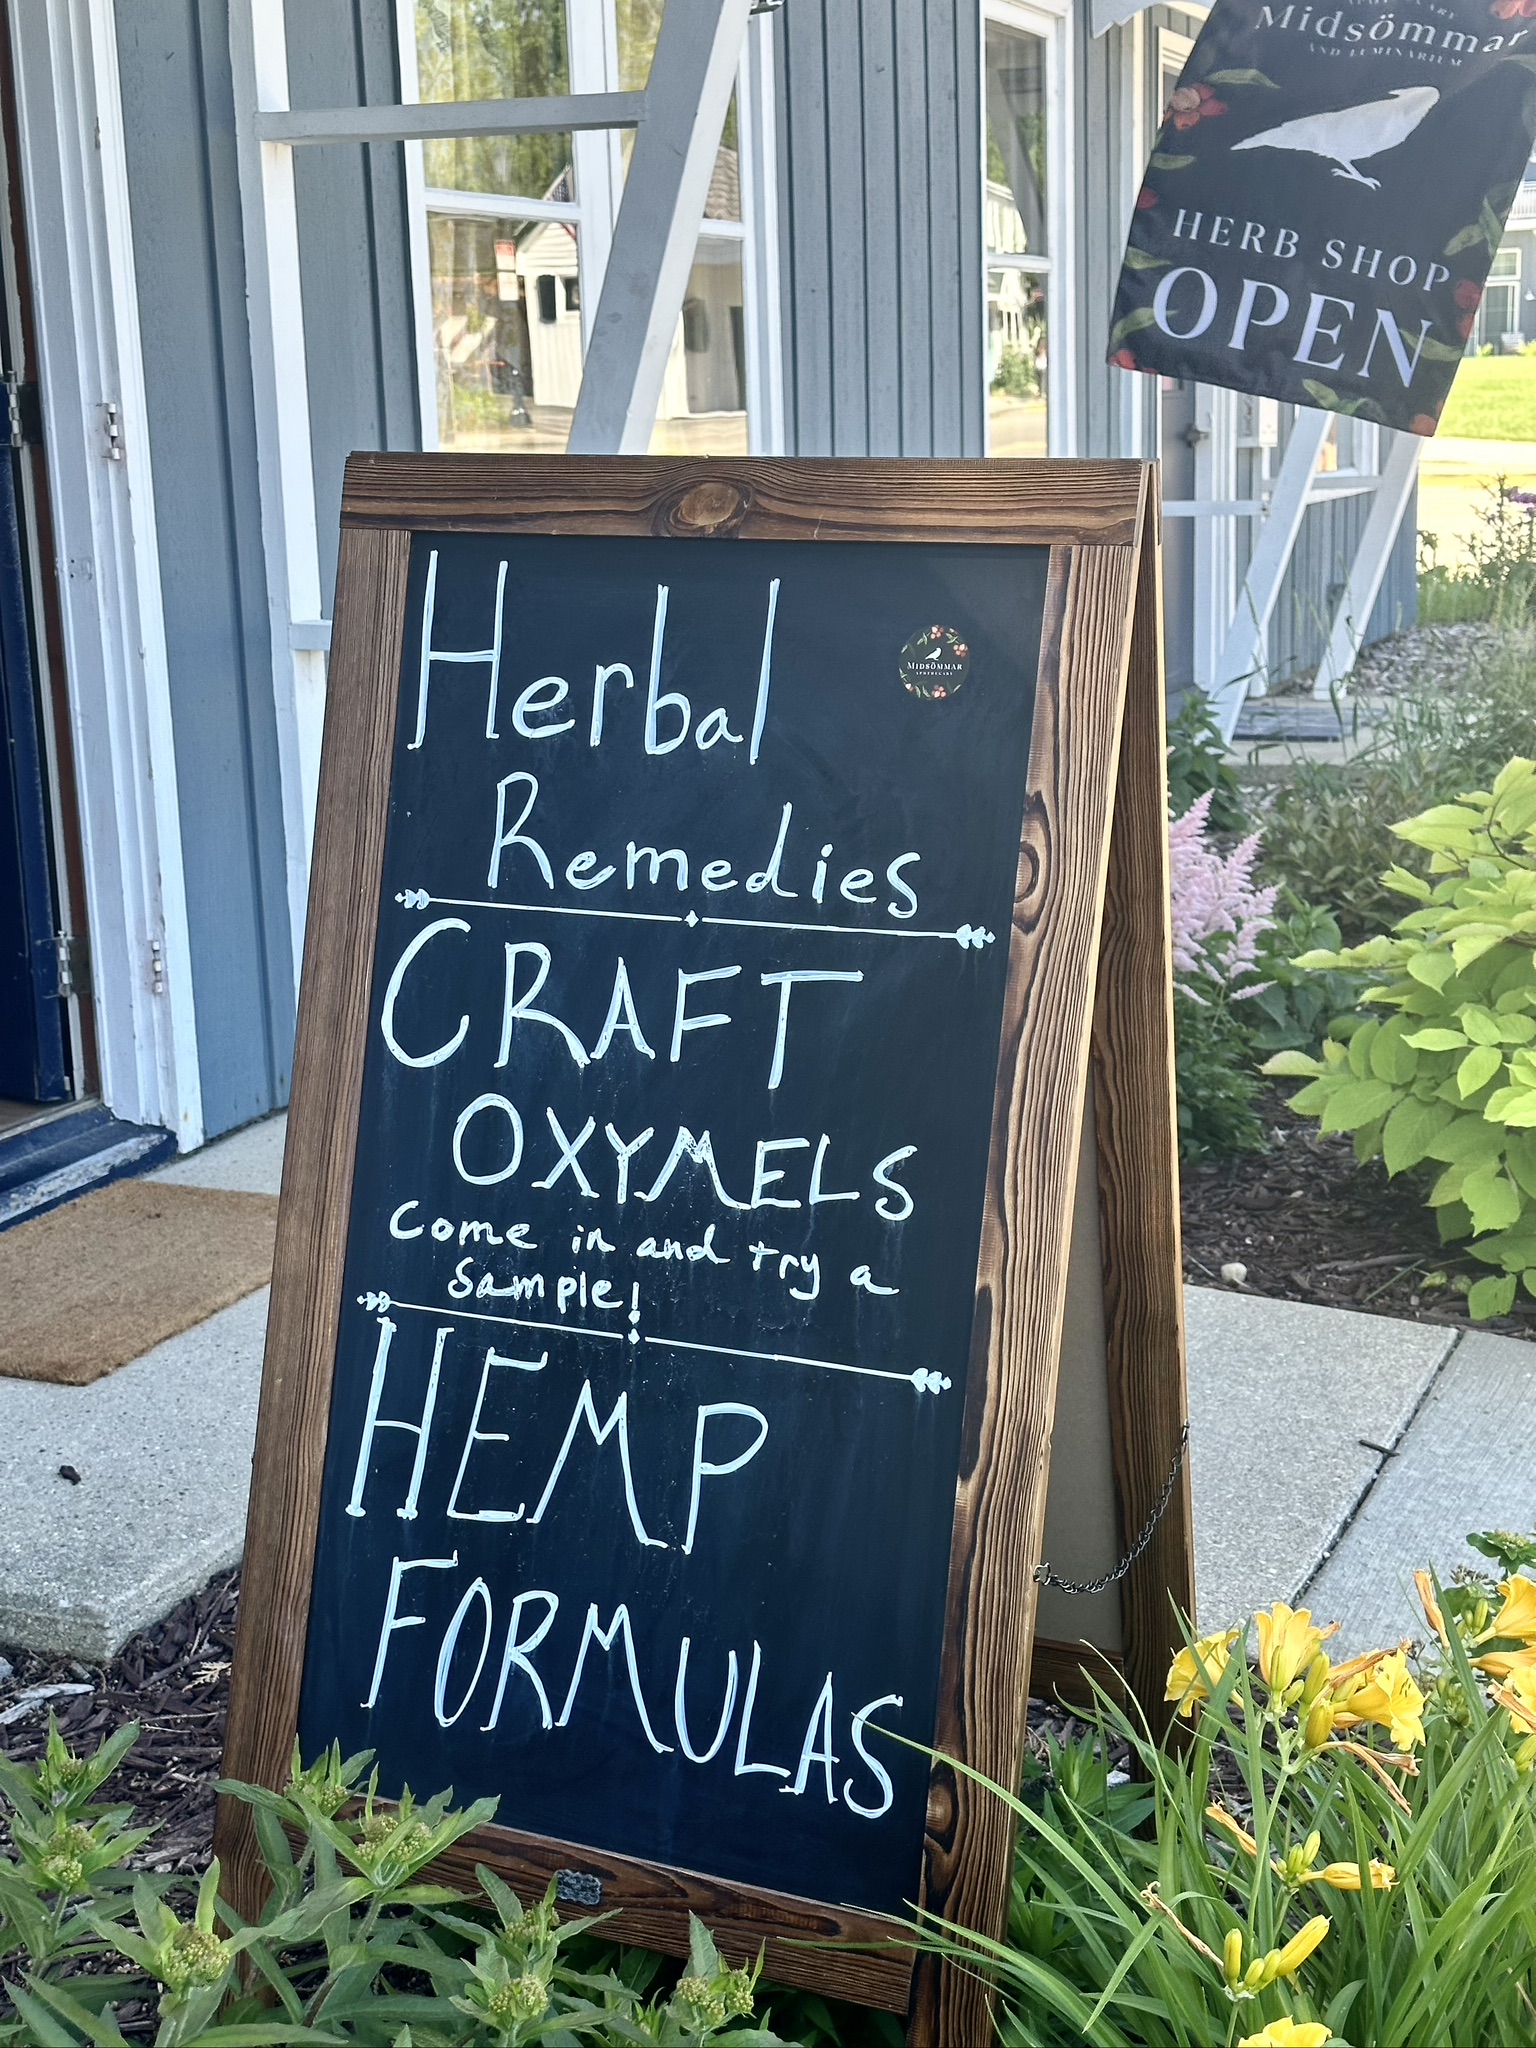 Midsömmar
AND LUMINARIUM
HERB SHOP
OPEN
Herbal
Remedies
MIDSÖMMAR
APOTHECARY
CRAFT
OXYMELS
Come in and try a
Sample!
HEMP
FORMULAS